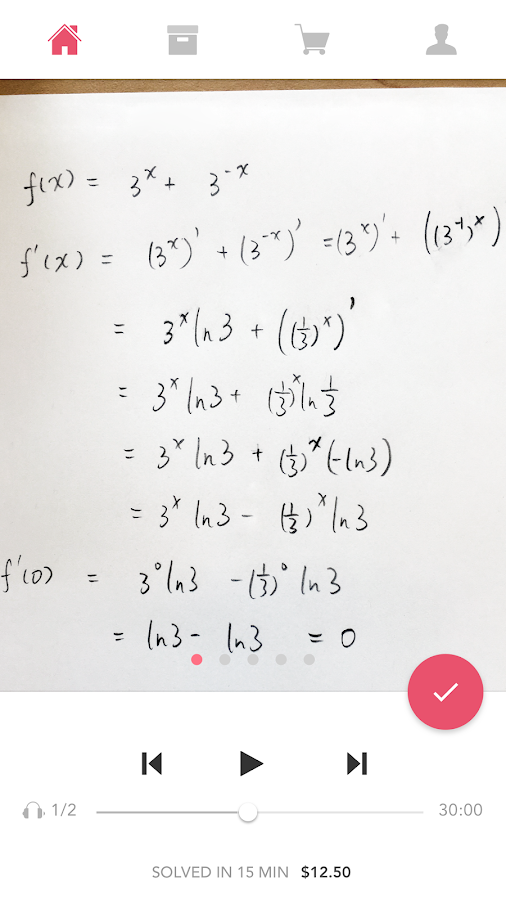 f(x) = 3^x + 3^-x
f'(x) = (3^x)' + (3^-x)' = (3^x)' + ((3^-1)^x)
= 3^x ln3 + ((1/3)^x)'
= 3^x ln3 + (1/3)^x ln 1/3
= 3^x ln3 + (1/3)^x (-ln3)
= 3^x ln3 - (1/3)^x ln3
f'(0) = 3^0 ln3 - (1/3)^0 ln3
= ln3 - ln3 = 0
1/2 30:00
SOLVED IN 15 MIN $12.50